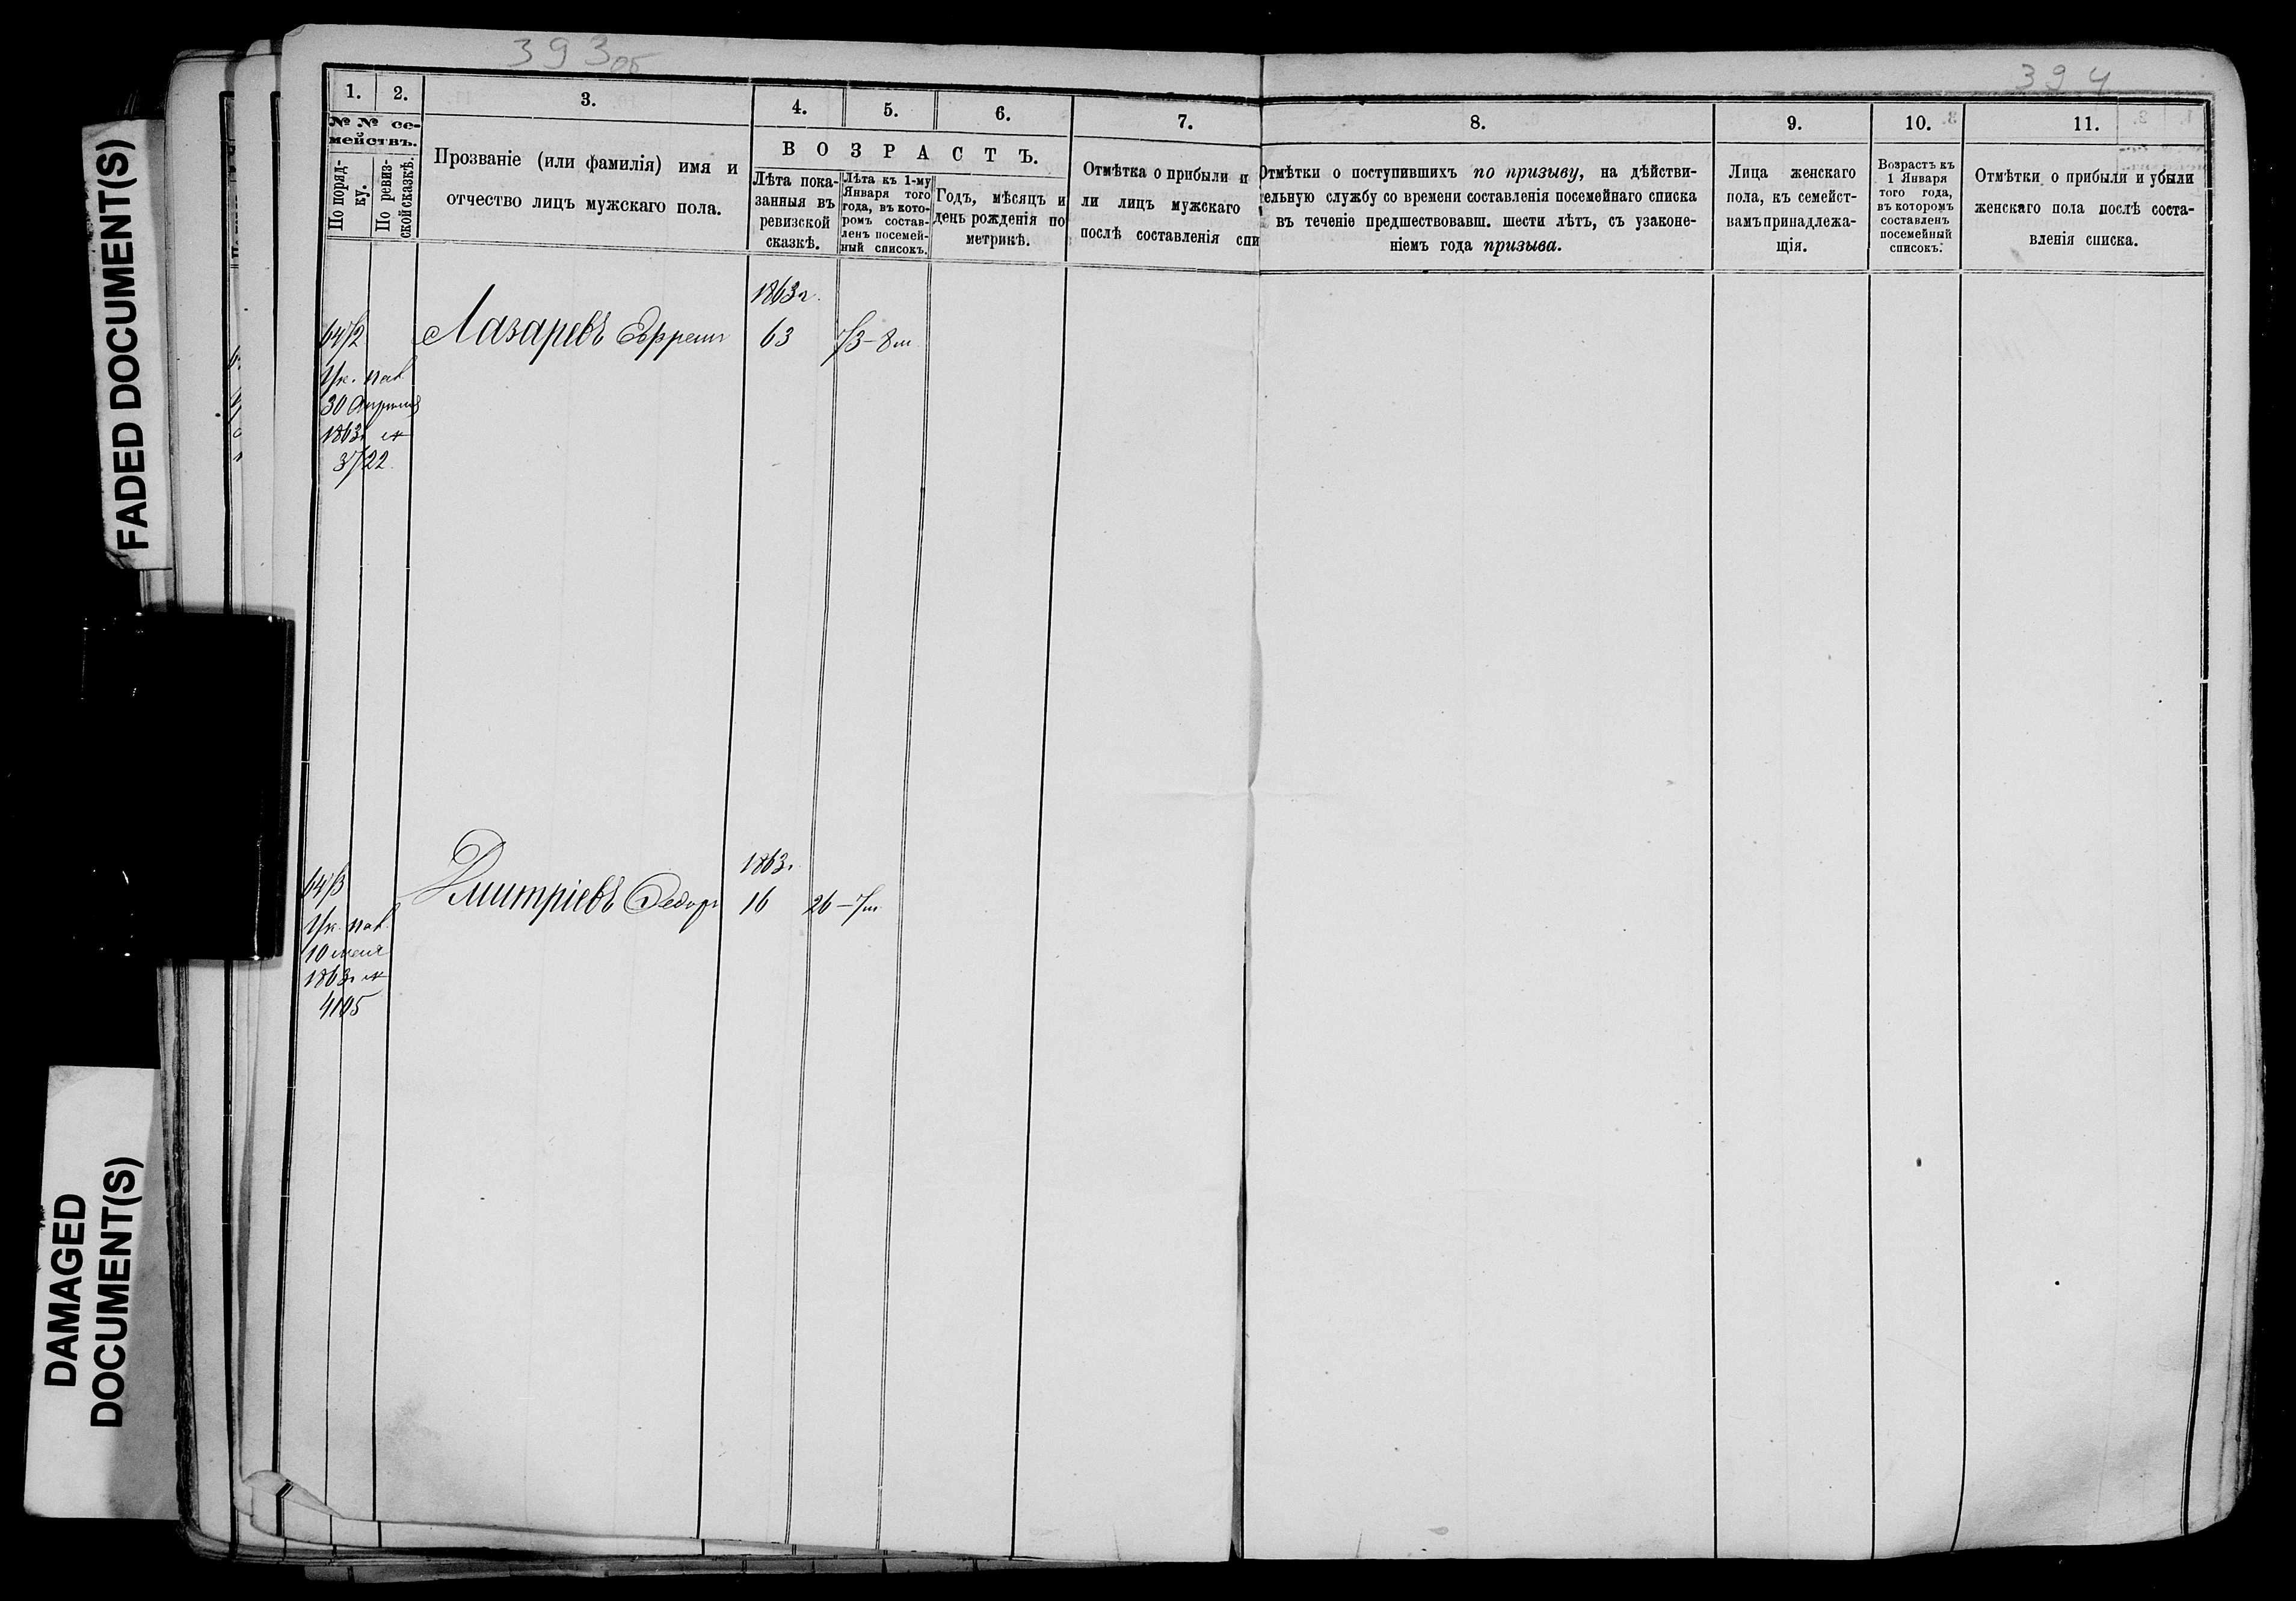 393об
394
1.
2.
3.
4.
5.
6.
7.
8.
9.
10.
11.
№ № се-
мействъ.
По поряд-
ку.
По ревиз-
ской сказкѣ.
Прозваніе (или фамилія) имя и
отчество лицъ мужскаго пола.
ВОЗРАСТЪ.
Лѣта пока-
занныя въ
ревизской
сказкѣ.
Лѣта къ 1-му
Января того
года, въ кото-
ромъ состав-
ленъ посемей-
ный списокъ.
Годъ, мѣсяцъ и
день рожденія по
метрикѣ.
Отмѣтка о прибыли и
ли лицъ мужскаго
послѣ составленія спи
Отмѣтки о поступившихъ по призыву, на дѣйстви-
тельную службу со времени составленія посемейнаго списка
въ теченіе предшествовавш. шести лѣтъ, съ узаконе-
ніемъ года призыва.
Лица женскаго
пола, къ семейст-
вамъ принадлежа-
щія.
Возрастъ къ
1 Января
того года,
въ которомъ
составленъ
посемейный
списокъ.
Отмѣтки о прибыли и убыли
женскаго пола послѣ соста-
вленія списка.
1863г.
642 Лазаревъ Ефремъ 63 73-8м
Ук. пал.
30 Апрѣля
1863г №
3722.
1863г.
643 Дмитріевъ Федоръ 16 26-7м
Ук. пал.
10 мая
1863г №
4105
FADED DOCUMENT(S)
DAMAGED
DOCUMENT(S)